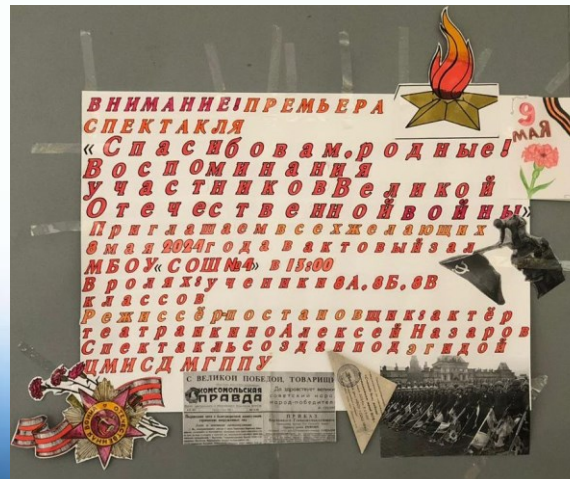 ВНИМАНИЕ! ПРЕМЬЕРА
СПЕКТАКЛЯ
«Спасибо вам, родные!
Воспоминания
участников Великой
Отечественной войны»
Приглашаем всех желающих
8 мая 2024 года в актовый зал
МБОУ «СОШ №4» в 13:00
В ролях: ученики 8А, 8Б, 8В
классов
Режиссёр-постановщик: актёр
театра и кино Алексей Назаров
Спектакль создан под эгидой
ЦМИСД МГППУ
9
МАЯ
С ВЕЛИКОЙ ПОБЕДОЙ, ТОВАРИЩИ
КОМСОМОЛЬСКАЯ
ПРАВДА
Да здравствует
советский народ
народ-победитель
ПРИКАЗ
ОТЕЧЕСТВЕННАЯ ВОЙНА